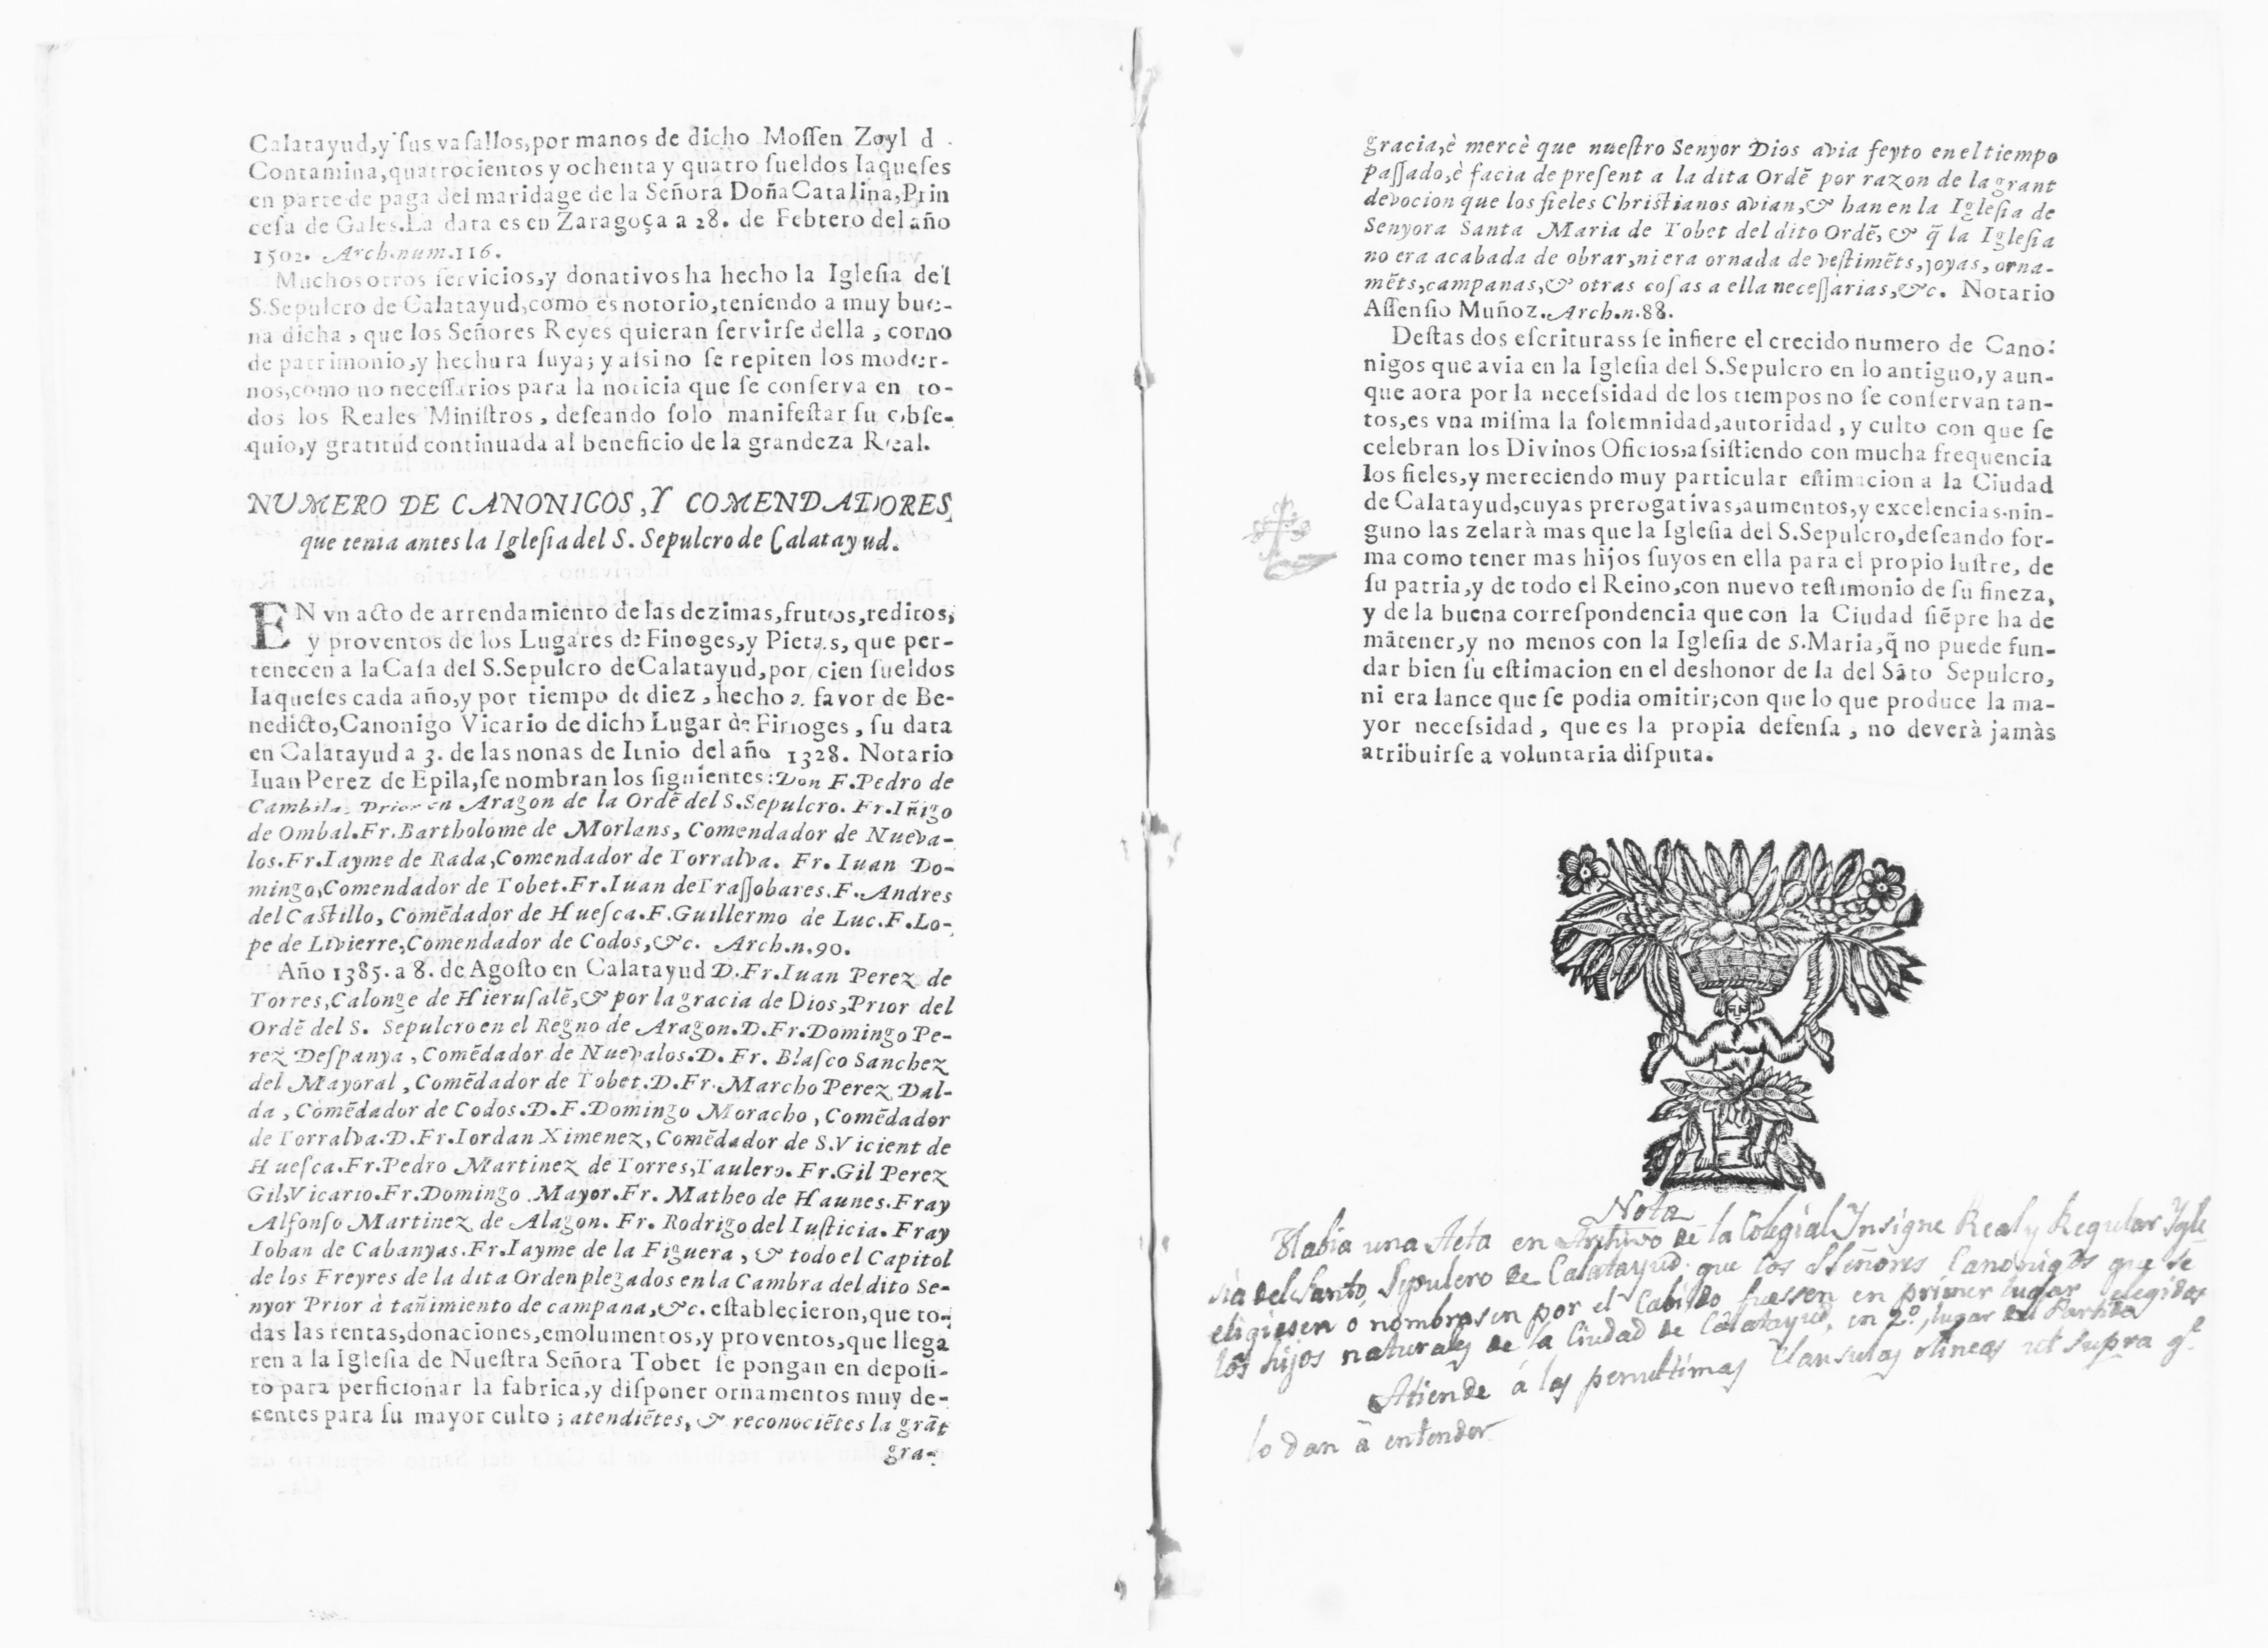 Calatayud,y ſus vaſallos,por manos de dicho Moſſen Zoyl d
Contamina,quatrocientos y ochenta y quatro ſueldos Iaqueſes
en parte de paga del maridage de la Señora Doña Catalina,Prin
ceſa de Gales.La data es en Zaragoça a 28. de Febrero del año
1502. Arch.num.116.
Muchos otros ſervicios,y donativos ha hecho la Igleſia del
S.Sepulcro de Calatayud,como es notorio,teniendo a muy bue-
na dicha , que los Señores Reyes quieran ſervirſe della , como
de patrimonio,y hechura ſuya; y aſsi no ſe repiten los moder-
nos,como no neceſſarios para la noticia que ſe conſerva en to-
dos los Reales Miniſtros , deſeando ſolo manifeſtar ſu obſe-
quio,y gratitud continuada al beneficio de la grandeza Real.
NUMERO DE CANONIGOS , Y COMENDADORES
que tenia antes la Igleſia del S. Sepulcro de Calatayud.
EN vn acto de arrendamiento de las dezimas,frutos,reditos,
y proventos de los Lugares de Finoges,y Pietas, que per-
tenecen a la Caſa del S.Sepulcro de Calatayud,por cien ſueldos
Iaqueſes cada año,y por tiempo de diez , hecho a favor de Be-
nedicto,Canonigo Vicario de dicho Lugar de Finoges , ſu data
en Calatayud a 3. de las nonas de Iunio del año 1328. Notario
Iuan Perez de Epila,ſe nombran los ſiguientes:Don F.Pedro de
Cambila, Prior en Aragon de la Ordē del S.Sepulcro. Fr.Iñigo
de Ombal.Fr.Bartholome de Morlans, Comendador de Nueva-
los.Fr.Iayme de Rada,Comendador de Torralva. Fr. Iuan Do-
mingo,Comendador de Tobet.Fr.Iuan de Traſſobares.F.Andres
del Caſtillo, Comēdador de Hueſca.F.Guillermo de Luc.F.Lo-
pe de Livierre,Comendador de Codos,&c. Arch.n.90.
Año 1385. a 8. de Agoſto en Calatayud D.Fr.Iuan Perez de
Torres,Calonge de Hieruſalē,& por la gracia de Dios,Prior del
Ordē del S. Sepulcro en el Regno de Aragon.D.Fr.Domingo Pe-
rez Deſpanya , Comēdador de Nuevalos.D. Fr. Blaſco Sanchez
del Mayoral , Comēdador de Tobet.D.Fr.Marcho Perez Dal-
da , Comēdador de Codos.D.F.Domingo Moracho , Comēdador
de Torralva.D.Fr.Iordan Ximenez, Comēdador de S.Vicient de
Hueſca.Fr.Pedro Martinez de Torres,Taulero. Fr.Gil Perez
Gil,Vicario.Fr.Domingo Mayor.Fr. Matheo de Haunes.Fray
Alfonſo Martinez de Alagon. Fr. Rodrigo del Iuſticia. Fray
Iohan de Cabanyas.Fr.Iayme de la Figuera , & todo el Capitol
de los Freyres de la dita Orden plegados en la Cambra del dito Se-
nyor Prior à tañimiento de campana,&c. eſtablecieron,que to-
das las rentas,donaciones,emolumentos,y proventos,que llega
ren a la Igleſia de Nueſtra Señora Tobet ſe pongan en depoſi-
to para perficionar la fabrica,y diſponer ornamentos muy de-
centes para ſu mayor culto ; atendiētes, & reconociētes la grāt
gra-
gracia,è mercè que nueſtro Senyor Dios avia feyto en el tiempo
paſſado,è facia de preſent a la dita Ordē por razon de la grant
devocion que los fieles Chriſtianos avian,& han en la Igleſia de
Senyora Santa Maria de Tobet del dito Ordē, & q̄ la Igleſia
no era acabada de obrar,ni era ornada de veſtimēts,joyas, orna-
mēts,campanas,& otras coſas a ella neceſſarias,&c. Notario
Aſſenſio Muñoz.Arch.n.88.
Deſtas dos eſcrituras s ſe infiere el crecido numero de Cano:
nigos que avia en la Igleſia del S.Sepulcro en lo antiguo,y aun-
que aora por la neceſsidad de los tiempos no ſe conſervan tan-
tos,es vna miſma la ſolemnidad,autoridad , y culto con que ſe
celebran los Divinos Oficios,aſsiſtiendo con mucha frequencia
los fieles,y mereciendo muy particular eſtimacion a la Ciudad
de Calatayud,cuyas prerogativas,aumentos,y excelencias,nin-
guno las zelarà mas que la Igleſia del S.Sepulcro,deſeando for-
ma como tener mas hijos ſuyos en ella para el propio luſtre, de
ſu patria,y de todo el Reino,con nuevo teſtimonio de ſu fineza,
y de la buena correſpondencia que con la Ciudad ſiēpre ha de
mātener,y no menos con la Igleſia de S.Maria,q̄ no puede fun-
dar bien ſu eſtimacion en el deshonor de la del Sāto Sepulcro,
ni era lance que ſe podia omitir;con que lo que produce la ma-
yor neceſsidad , que es la propia defenſa , no deverà jamàs
atribuirſe a voluntaria diſputa.
Nota
Habia una Acta en Archivo de la Colegial Insigne Real y Regular Ygle
sia del Santo Sepulcro de Calatayud que los Señores Canonigos que se
eligiesen o nombrasen por el Cabildo fuessen en primer lugar elegidos
los hijos naturales de la Ciudad de Calatayud, en 2º, lugar del Partido
Atiende á las penultimas Clausulas o lineas ut supra qe
lo dan á entender